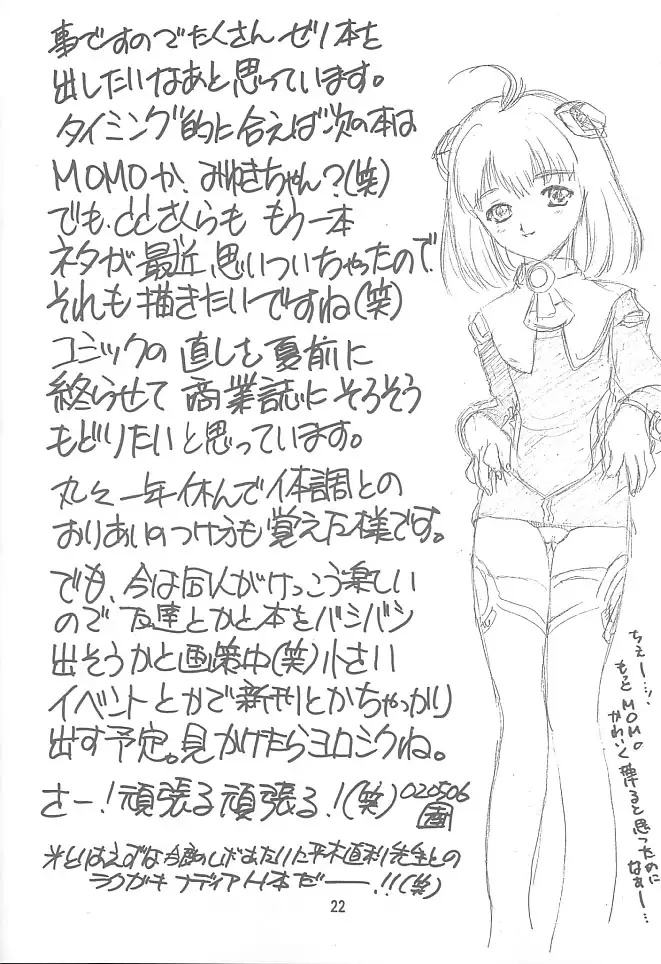 事ですのでたくさん ゼリ本を
出したいなあと思っています。
タイミング的に合えば次の本は
MOMOか、みゆきちゃん?(笑)
でも、ととさくらも もう一本
ネタが最近、思いついちゃったので、
それも描きたいですね(笑)
コミックの 直しを夏前に
終らせて 商業誌にそろそろ
もどりたいと思っています。
丸々一年休んで体調との
おりあいのつけ方も覚えた様です。
でも、今は同人がけっこう楽しい
ので 友達とかと本をバシバシ
出そうかと画策中(笑)小さい
イベントとかで新刊とかちゃっかり
出す予定。見かけたらヨロシクね。
さー!頑張る頑張る!(笑)020506
画
平木直利先生との
ラクガキ ナディアH本だー!!(笑)
ちぇー…。
もっと MOMO
かわいく
描けると思ったのに
なぁー…
22